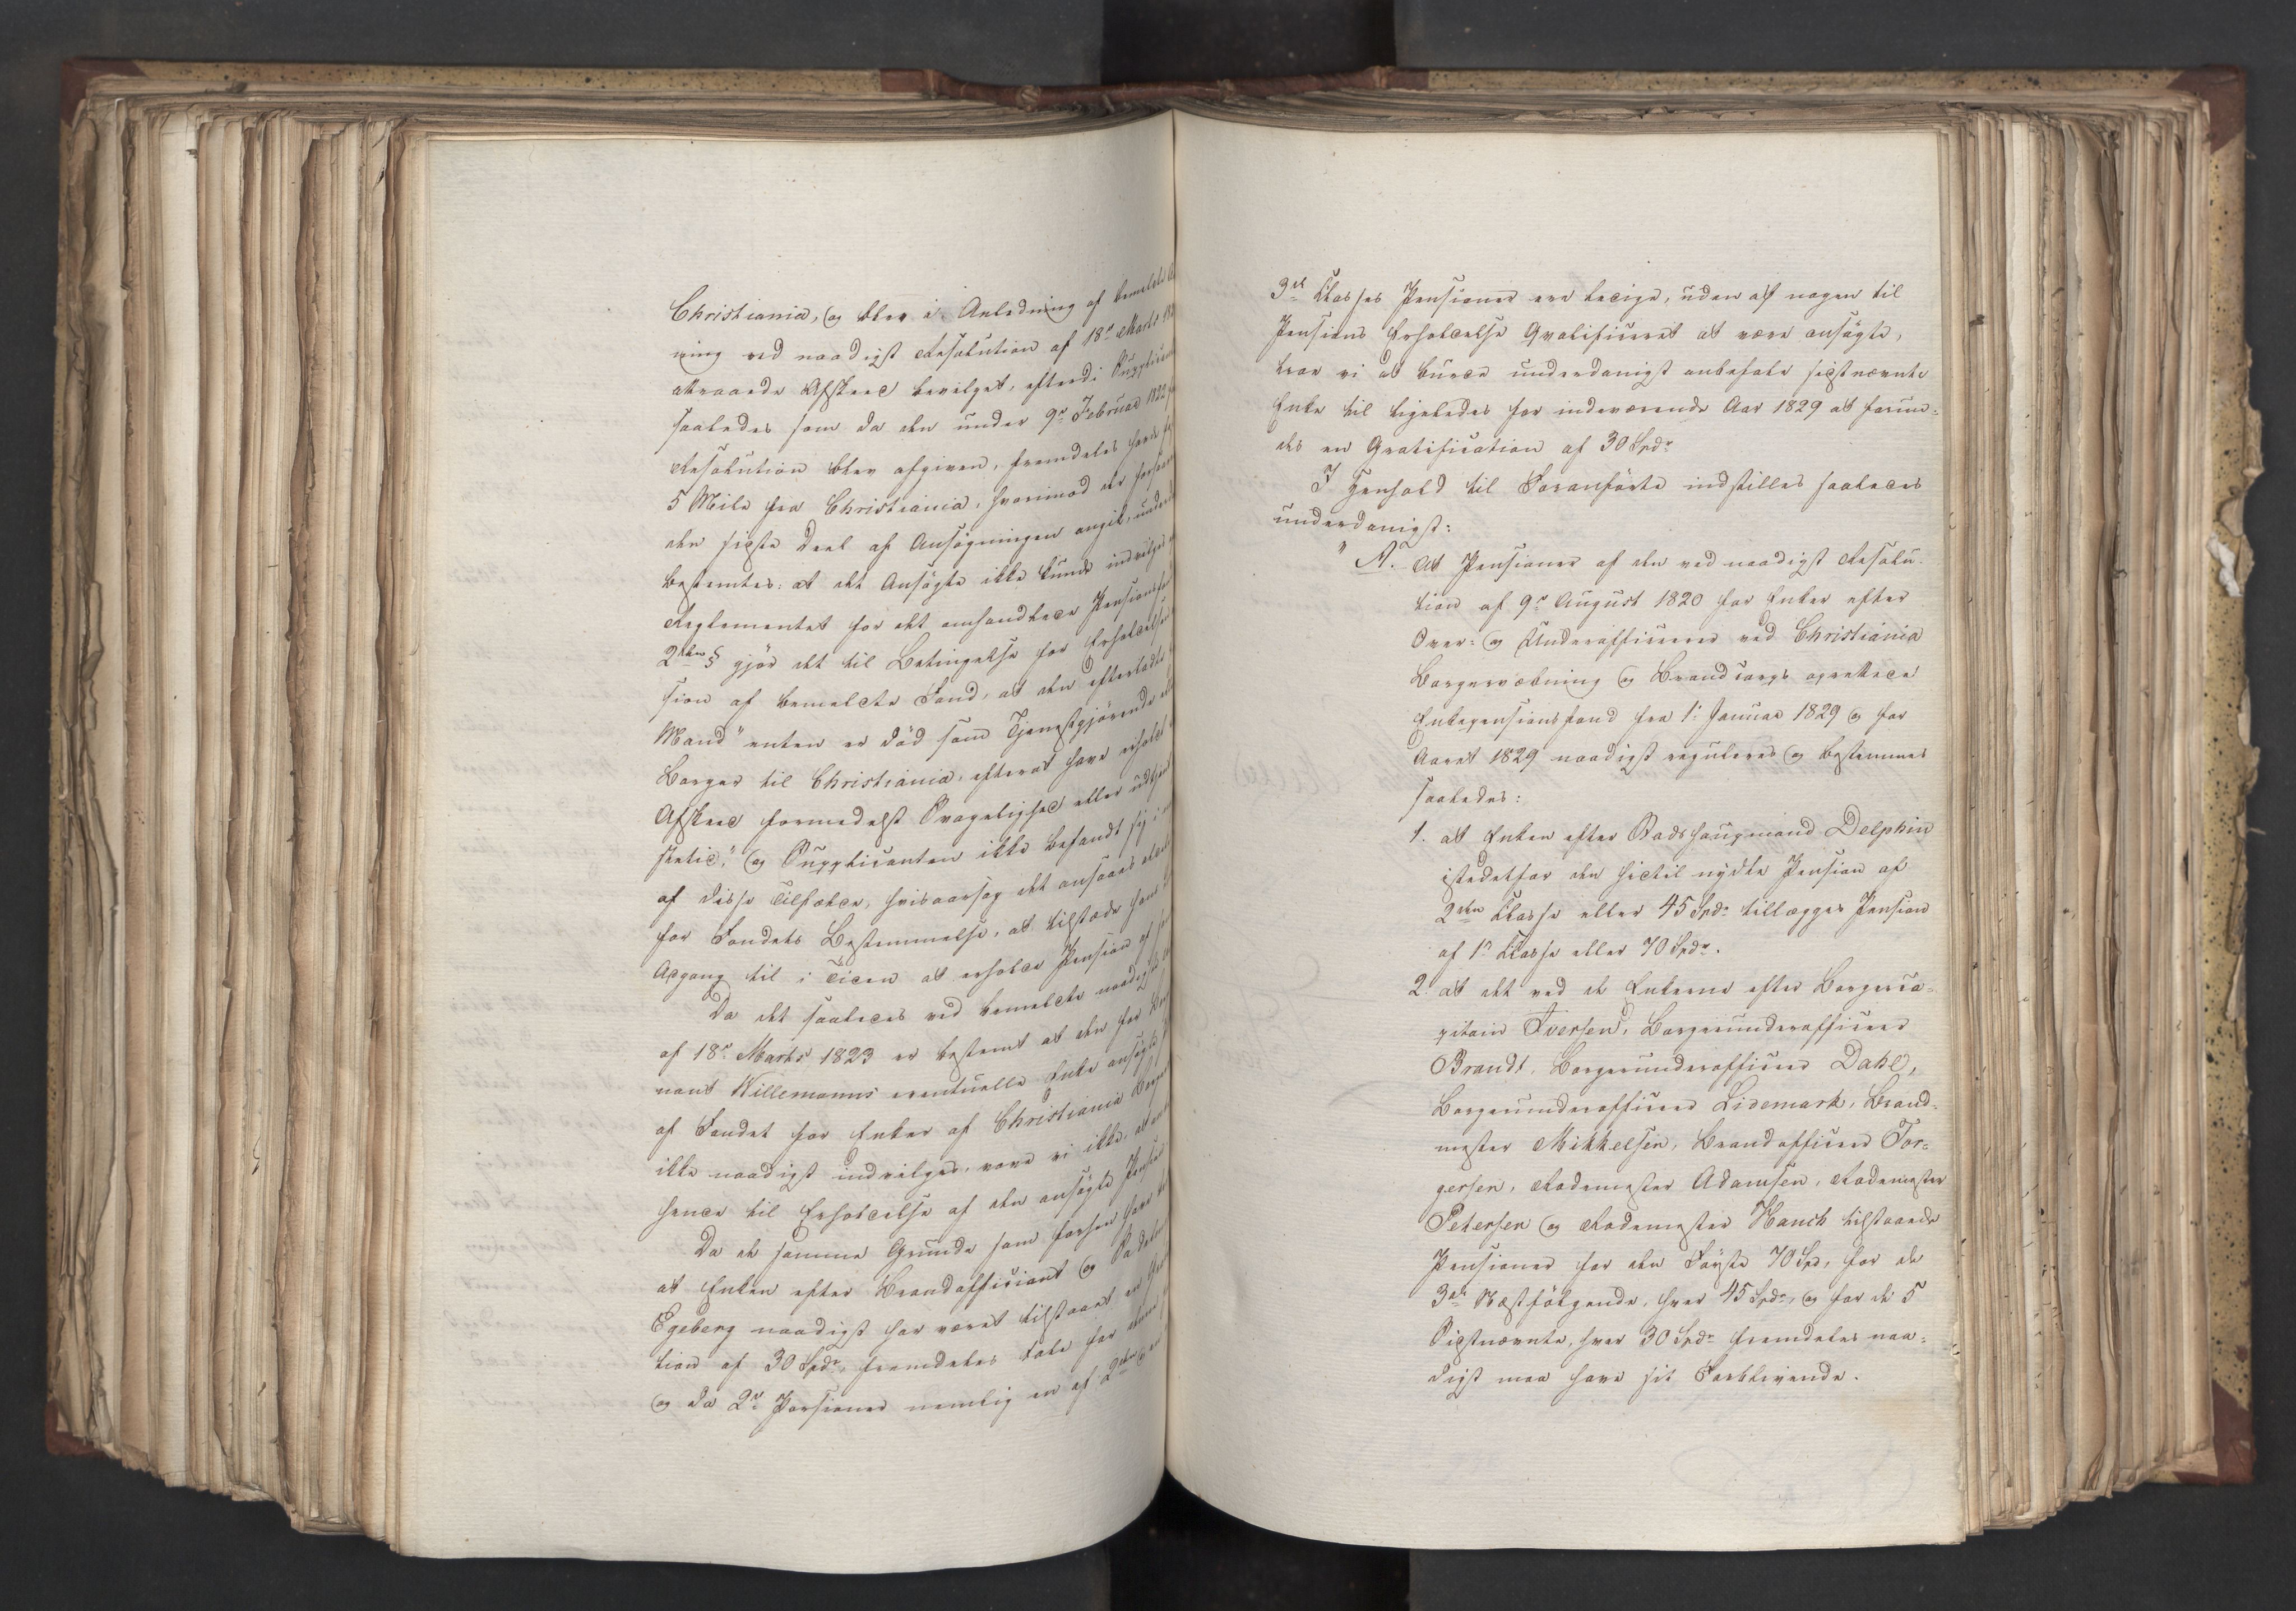 Christiania, og blev i Anledning af bemeldte
ning ved naadigst Resolution af 18de Marts
attraaede Afskeed bevilget, efterdi Supplicanten
saaledes som da den under 9de Februar 1822
Resolution blev afgiven, fremdeles havde
5 Mile fra Christiania, hvorimod der forsaavidt
den sidste Deel af Ansøgningen angik, under
bestemtes: at det Ansøgte ikke kunde indvilges
Reglementet for det omhandlede Pensionsfond
2den § gjør det til Betingelse for Erholdelsen
sion af bemeldte Fond, at den efterladte
Mand "enten er død som Tjenestgjørende
Borger til Christiania, efterat have erholdt
Afskeed formedelst Svagelighed eller udtjent
stetid," og Supplicanten ikke befandt sig i
af disse Tilfælde, hvisaarsag det ansaaes
for Fondets Bestemmelse, at tilstede hans
Adgang til i Tiden at erholde Pension af
Da det saaledes ved bemeldte naadigste
af 18de Marts 1823 er bestemt at den for
nant Willemanns eventuelle Enke ansøgte
af Fondet for Enker af Christiania Borger
ikke naadigst indvilges, vove vi ikke, at
hende til Erholdelse af den ansøgte Pension
Da de samme Grunde som forhen have
at Enken efter Brandofficiant og
Egeberg naadigst har været tilstaaet en
tion af 30 Spdr, fremdeles tale for
og da 2de Pensioner nemlig en af 2den og
3die Klasses Pensioner ere ledige, uden at nogen til
Pensions Erholdelse Qvalificeret at være ansøgte,
troe vi at burde underdanigst anbefale sidstnævnte
Enke til ligeledes for indeværende Aar 1829 at forun-
des en Gratification af 30 Spdr
I Henhold til Foranførte indstilles saaledes
underdanigst:
"A. At Pensioner af den ved naadigst Resolu-
tion af 9de August 1820 for Enker efter
Over- og Underofficerer ved Christiania
Borgervæbning og Brandcorps oprettede
Enkepensionsfond fra 1. Januar 1829 og for
Aaret 1829 naadigst reguleres og bestemmes
saaledes:
1. at Enken efter Stadshauptmand Delphin
istedetfor den hidtil nydte Pension af
2den Klasse eller 45 Spdr tillægges Pension
af 1ste Klasse eller 70 Spdr.
2. at det ved de Enkerne efter Borgerca-
pitain Iversen, Borgerunderofficeer
Brandt, Borgerunderofficeer Dahl,
Borgerunderofficeer Lidemark, Brand-
mester Mikkelsen, Brandofficeer Tor-
gersen, Rodemester Adamsen, Rodemester
Petersen og Rodemester Hanch tilstaaede
Pensioner for den Første 70 Spd, for de
3de Næstfølgende, hver 45 Spdr, og for de 5
Sidstnævnte, hver 30 Spdr fremdeles naa-
digst maa have sit Forblivende.